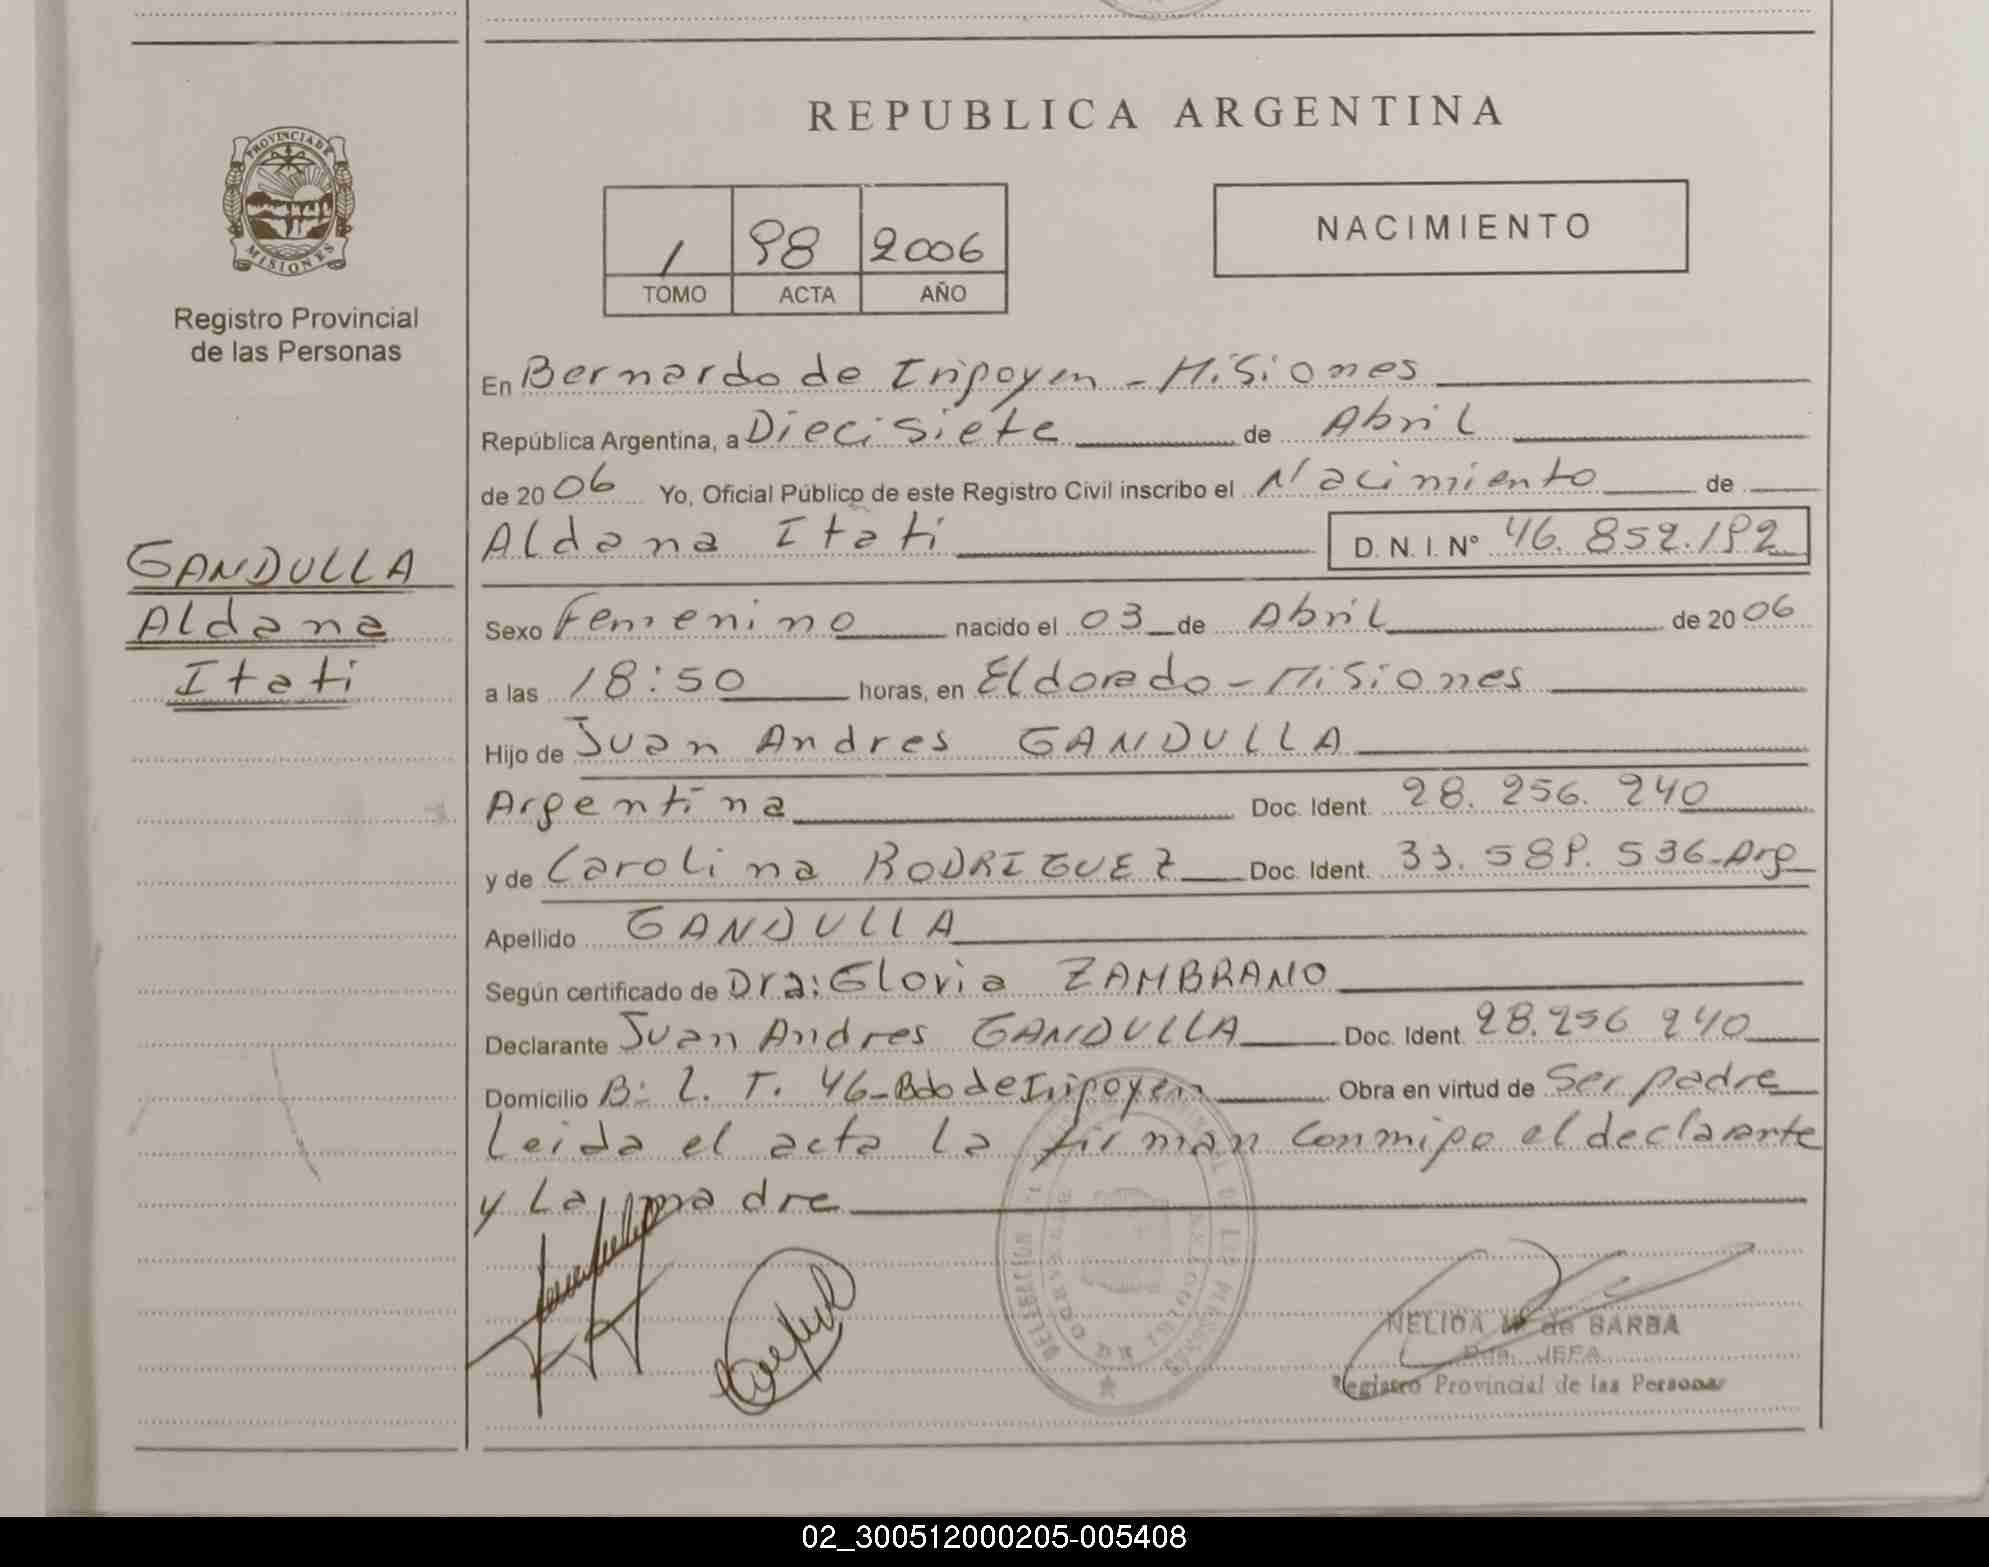 REPUBLICA ARGENTINA
PROVINCIA DE
MISIONES
Registro Provincial
de las Personas
1 98 2006
TOMO ACTA AÑO
NACIMIENTO
En Bernardo de Irigoyen - Misiones
República Argentina, a Diecisiete de Abril
de 2006 Yo, Oficial Público de este Registro Civil inscribo el Nacimiento de
Aldana Itati D. N. I. Nº 46.852.192
GANDULLA
Aldana
Itati
Sexo Femenino nacido el 03 de Abril de 2006
a las 18:50 horas, en Eldorado - Misiones
Hijo de Juan Andres GANDULLA
Argentina Doc. Ident. 28.256.240
y de Carolina RODRIGUEZ Doc. Ident. 33.589.536-Arg
Apellido GANDULLA
Según certificado de Dra: Gloria ZAMBRANO
Declarante Juan Andres GANDULLA Doc. Ident. 28.256 240
Domicilio B: L. T. 46-Bdo de Irigoyen Obra en virtud de Ser padre
Leida el acta la firman conmigo el declarante
y la madre
NELIDA M. de BARBA
JEFA
Registro Provincial de las Personas
02_300512000205-005408